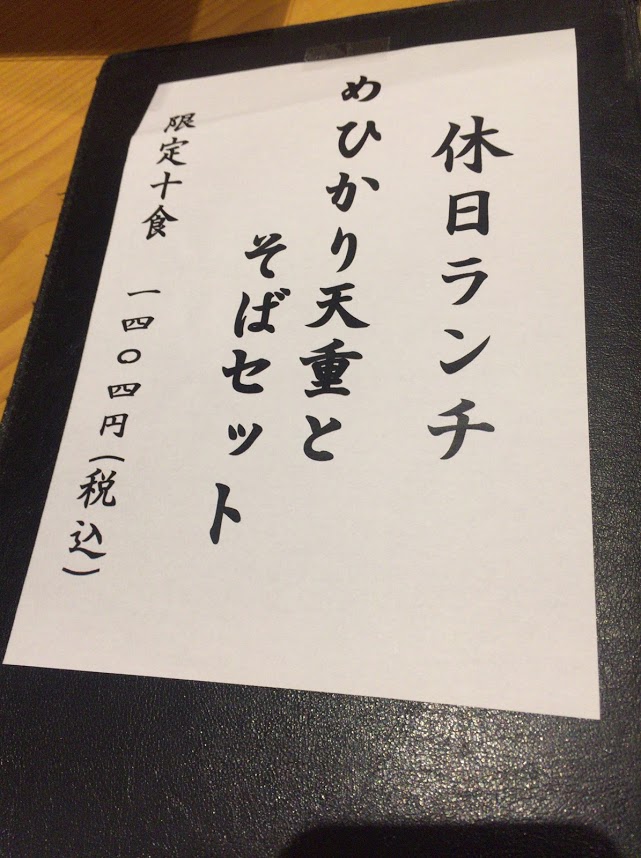 休日ランチ
めひかり天重と
そばセット
限定十食
一四〇四円(税込)